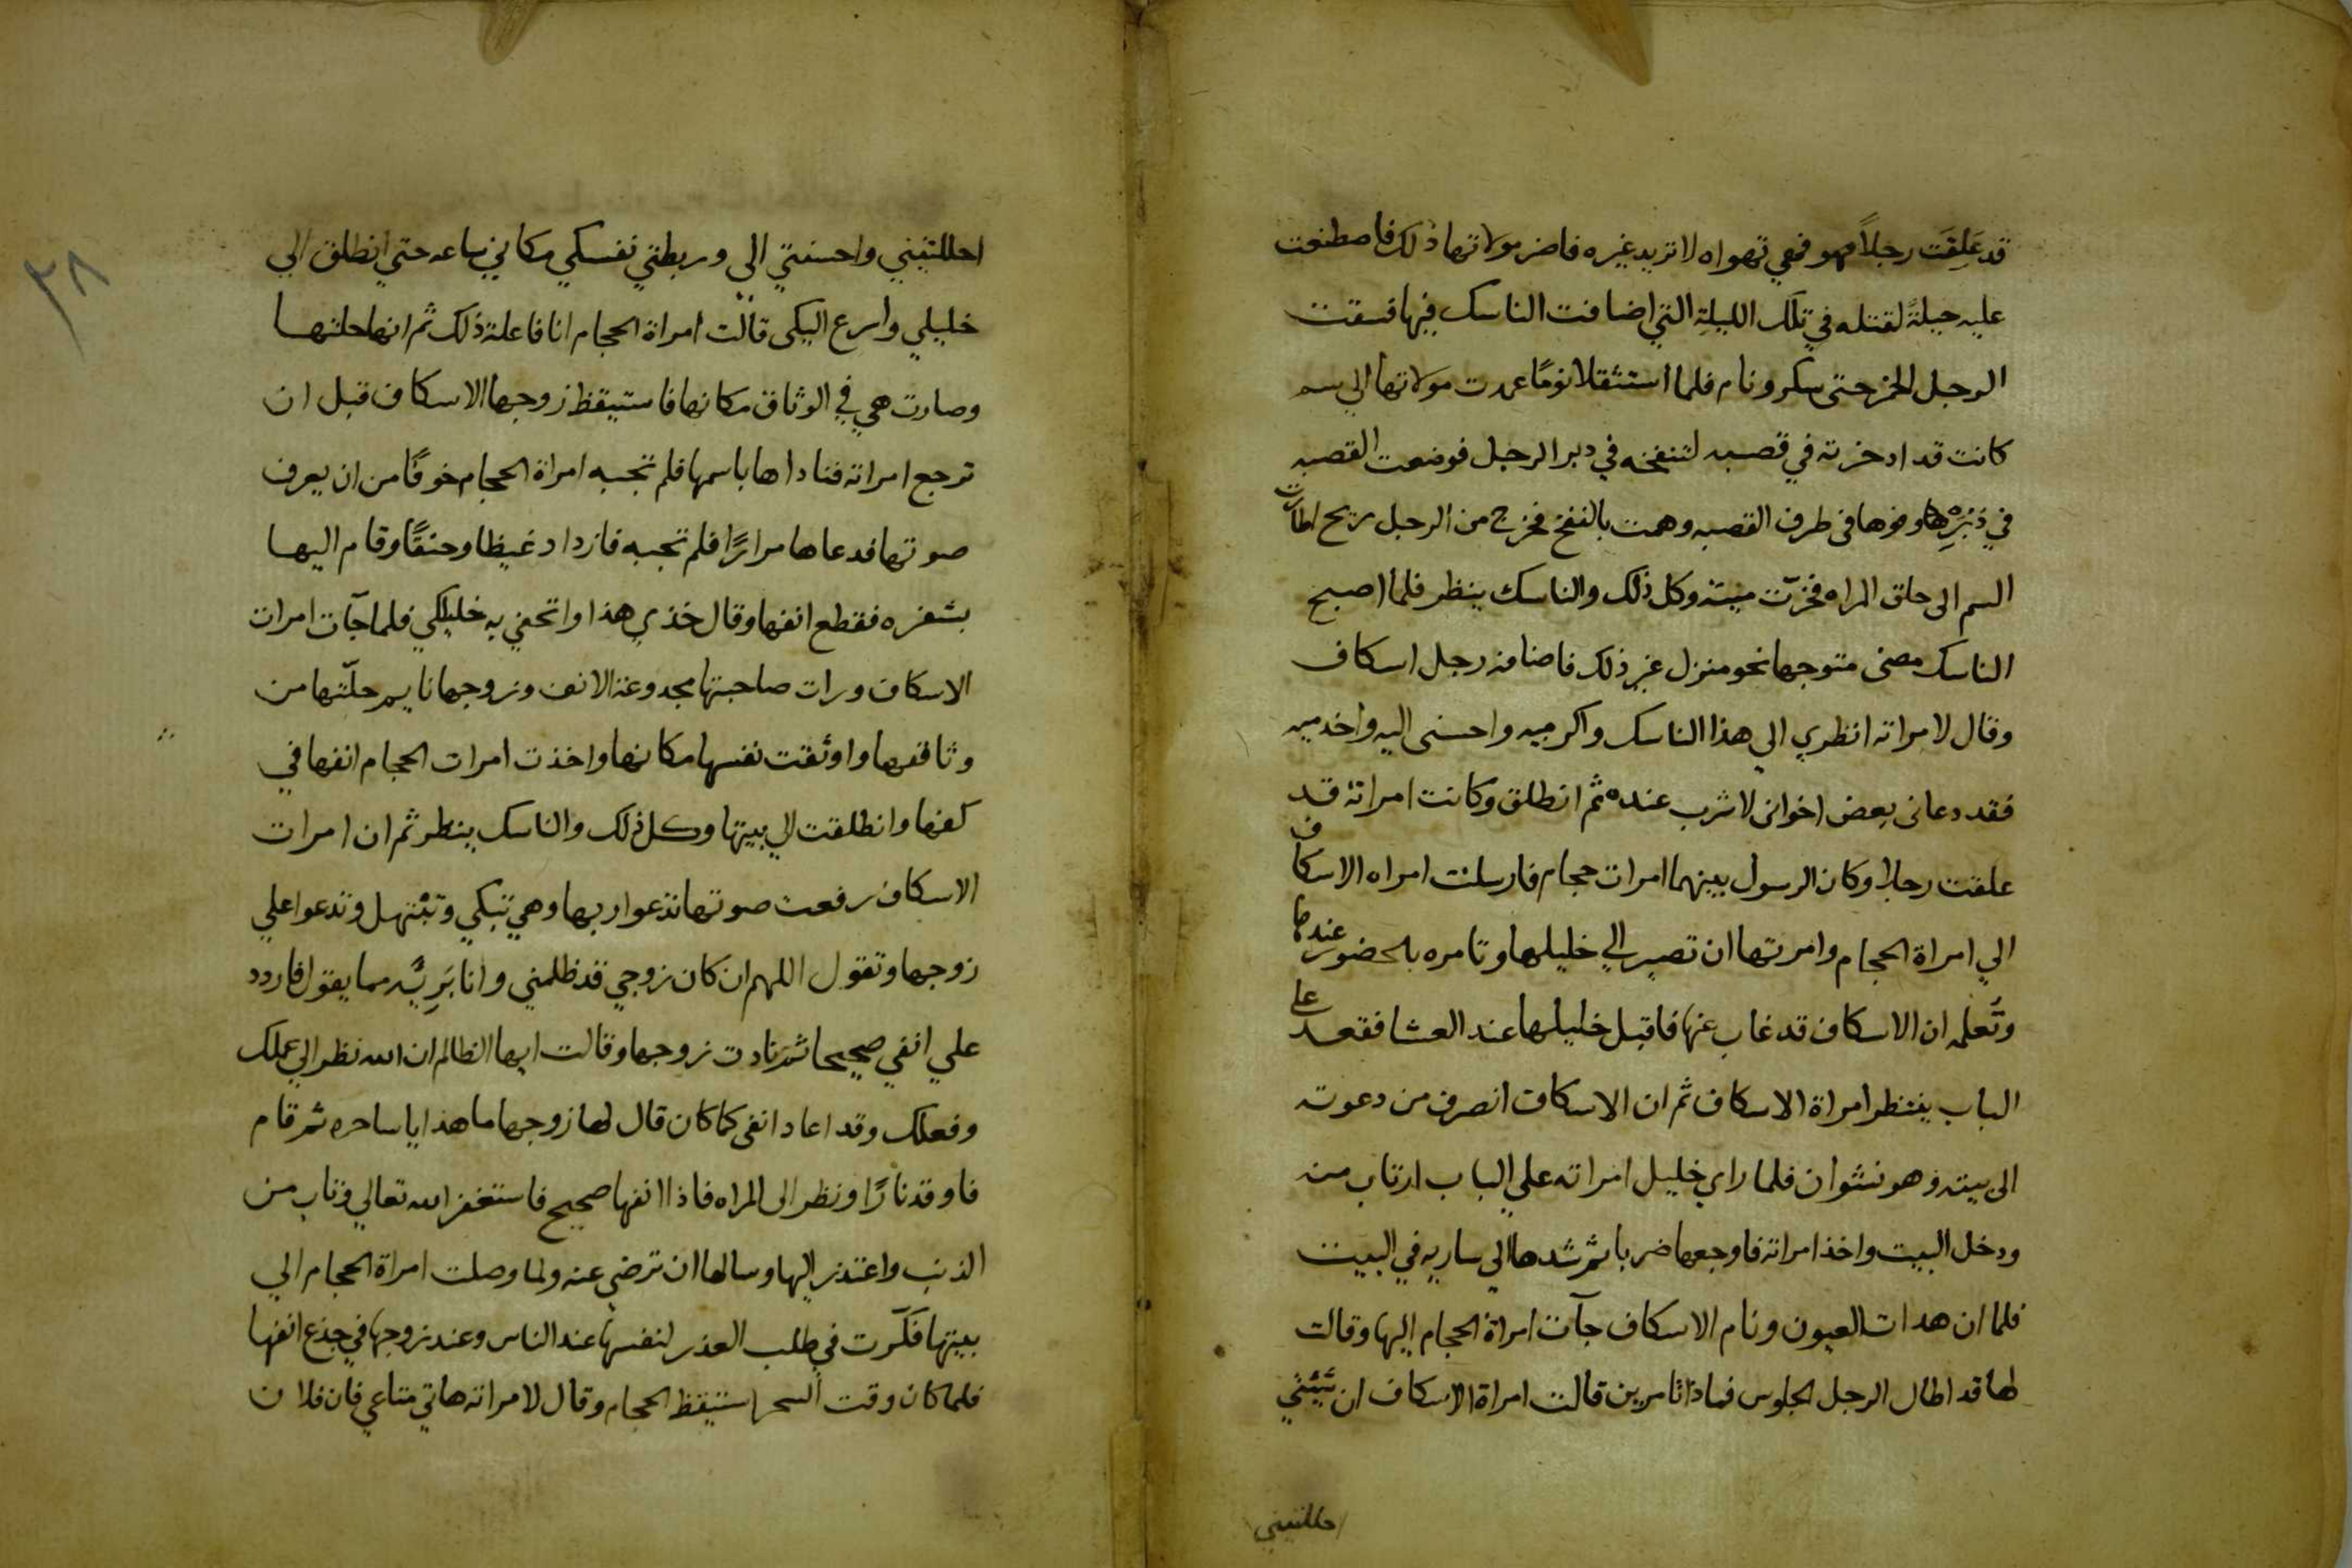 قد عَلِقَت رجلاً فهو فهي تهواه لا تريد غيره فاضر مولاتها ذلك فاصطنعت
عليه حيلةً لقتله في تلك الليلةِ التي اضافت الناسك فيها فسقت
الرجل الخمر حتى سكر ونام فلما استثقلا نومًا عمدت مولاتها الي سم
كانت قد ادخرته في قصبه لتنفخه في دبر الرجل فوضعت القصبه
في دُبُرِهِ وفوها في طرف القصبه وهمت بالنفخ فخرج من الرجل ريح اطارت
السم الى حلق المراه فخرّت ميتة وكل ذلك والناسك ينظر فلما اصبح
الناسك مضى متوجها نحو منزل غير ذلك فاضافه رجل اسكاف
وقال لامراته انظري الي هذا الناسك واكرميه واحسنى اليه واخدميه
فقد دعانى بعض اخوانى لاشرب عنده ثم انطلق وكانت امراته قد
علقت رجلا وكان الرسول بينهما امرات حجام فارسلت امراه الاسكاف
الي امراة الحجام وامرتها ان تصير الي خليلها وتامره بالحضور عندها
وتَعلمه ان الاسكاف قد غاب عنها فاقبل خليلها عند العشا فقعد على
الباب ينتظر امراة الاسكاف ثم ان الاسكاف انصرف من دعوته
الى بيته وهو نشوان فلما راي خليل امراته علي الباب ارتاب منه
ودخل البيت واخذ امراته فاوجعها ضربا ثم شدها الي ساريه في البيت
فلما ان هدات العيون ونام الاسكاف جآت امراة الحجام اليها وقالت
لها قد اطال الرجل الجلوس فماذا تامرين قالت امراة الاسكاف ان شئتي
احللتيني
٣٨
احللتيني واحسنتي الى وربطتي نفسكي مكاني ساعه حتي انطلق الي
خليلي واسرع اليكى قالت امراة الحجام انا فاعلة ذلك ثم انها حلتها
وصارت هي في الوثاق مكانها فاستيقظ زوجها الاسكاف قبل ان
ترجع امراته فناداها باسمها فلم تجبه امراة الحجام خوفًا من ان يعرف
صوتها فدعاها مرارًا فلم تجبه فازداد غيظا وحنقًا وقام اليها
بشفره فقطع انفها وقال خذي هذا واتحفي به خليلكي فلما جآت امرات
الاسكاف ورات صاحبتها مجدوعة الانف وزوجها نايم حلّتها من
وثاقها واوثقت نفسها مكانها واخذت امرات الحجام انفها في
كفها وانطلقت الي بيتها وكل ذلك والناسك ينظر ثم ان امرات
الاسكاف رفعت صوتها تدعوا ربها وهي تبكي وتبتهل وتدعوا علي
زوجها وتقول اللهم ان كان زوجي قد ظلمني وانا بَرِيَّه مما يقول فاردد
علي انفي صحيحا ثم نادت زوجها وقالت ايها الظالم ان الله نظر الي عملك
وفعلك وقد اعاد انفى كما كان قال لها زوجها ما هذا يا ساحره ثم قام
فاوقد نارًا ونظر الى المراه فاذا انفها صحيح فاستغفر الله تعالي وتاب من
الذنب واعتذر اليها وسالها ان ترضي عنه ولما وصلت امراة الحجام الي
بيتها فكّرت في طلب العذر لنفسها عند الناس وعند زوجها في جذع انفها
فلما كان وقت السحر استيقظ الحجام وقال لامراته هاتي متاعي فان فلان